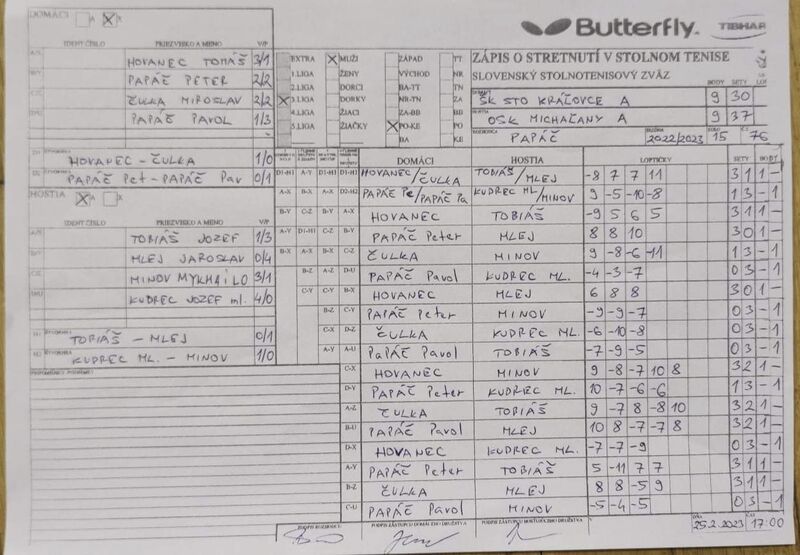 DOMÁCI A X
Butterfly TIBHAR
IDENT ČÍSLO PRIEZVISKO A MENO V/P
HOVANEC TOMÁŠ 3/1
PAPÁČ PETER 2/2
ČULKA MIROSLAV 2/2
PAPÁČ PAVOL 1/3
HOVANEC - ČULKA 1/0
PAPÁČ Pet - PAPÁČ Pav 0/1
HOSTIA A X
IDENT ČÍSLO PRIEZVISKO A MENO V/P
TOBIÁŠ JOZEF 1/3
MLEJ JAROSLAV 0/4
MINOV MYKHAILO 3/1
KUDREC JOZEF ml. 4/0
TOBIÁŠ - MLEJ 0/1
KUDREC ML. - MINOV 1/0
EXTRA MUŽI ZÁPAD TT
1.LIGA ŽENY VÝCHOD NR
2.LIGA DORCI BA-TT TN
3.LIGA DORKY NR-TN ZA
4.LIGA ŽIACI ZA-BB BB
5.LIGA ŽIAČKY PO-KE PO
BA KE
ZÁPIS O STRETNUTÍ V STOLNOM TENISE
SLOVENSKÝ STOLNOTENISOVÝ ZVÄZ
BODY SETY
ŠK STO KRÁĽOVCE A 9 30
OŠK MICHAĽANY A 9 37
PAPÁČ 2022/2023 15 76
DOMÁCI HOSTIA LOPTIČKY SETY BODY
D1-H1 A-Y D1-H1 D1-H1 HOVANEC/ČULKA TOBIÁŠ/MLEJ -8 7 7 11 3 1 1 -
A-X B-X A-X D2-H2 PAPÁČ Pe/PAPÁČ Pa KUDREC ML/MINOV 9 -5 -10 -8 1 3 - 1
B-Y C-Z B-Y A-X HOVANEC TOBIÁŠ -9 5 6 5 3 1 1 -
A-Y D1-H1 C-Z B-Y PAPÁČ Peter MLEJ 8 8 10 3 0 1 -
B-X A-X B-X C-Z ČULKA MINOV 9 -8 -6 -11 1 3 - 1
B-Z A-Z D-U PAPÁČ Pavol KUDREC ML. -4 -3 -7 0 3 - 1
C-Y C-Y B-X HOVANEC MLEJ 6 8 8 3 0 1 -
B-Z C-Y PAPÁČ Peter MINOV -9 -9 -7 0 3 - 1
C-X D-Z ČULKA KUDREC ML. -6 -10 -8 0 3 - 1
A-Y A-U PAPÁČ Pavol TOBIÁŠ -7 -9 -5 0 3 - 1
C-X HOVANEC MINOV 9 -8 -7 10 8 3 2 1 -
D-Y PAPÁČ Peter KUDREC ML. 10 -7 -6 -6 1 3 - 1
A-Z ČULKA TOBIÁŠ 9 -7 8 -8 10 3 2 1 -
B-U PAPÁČ Pavol MLEJ 10 8 -7 -7 8 3 2 1 -
D-X HOVANEC KUDREC ML. -7 -7 -9 0 3 - 1
A-Y PAPÁČ Peter TOBIÁŠ 5 -11 7 7 3 1 1 -
B-Z ČULKA MLEJ 8 8 -5 9 3 1 1 -
C-U PAPÁČ Pavol MINOV -5 -4 -5 0 3 - 1
PODPIS ROZHODCU PODPIS ZÁSTUPCU DOMÁCEHO DRUŽSTVA PODPIS ZÁSTUPCU HOSŤUJÚCEHO DRUŽSTVA
25.2.2023 17:00